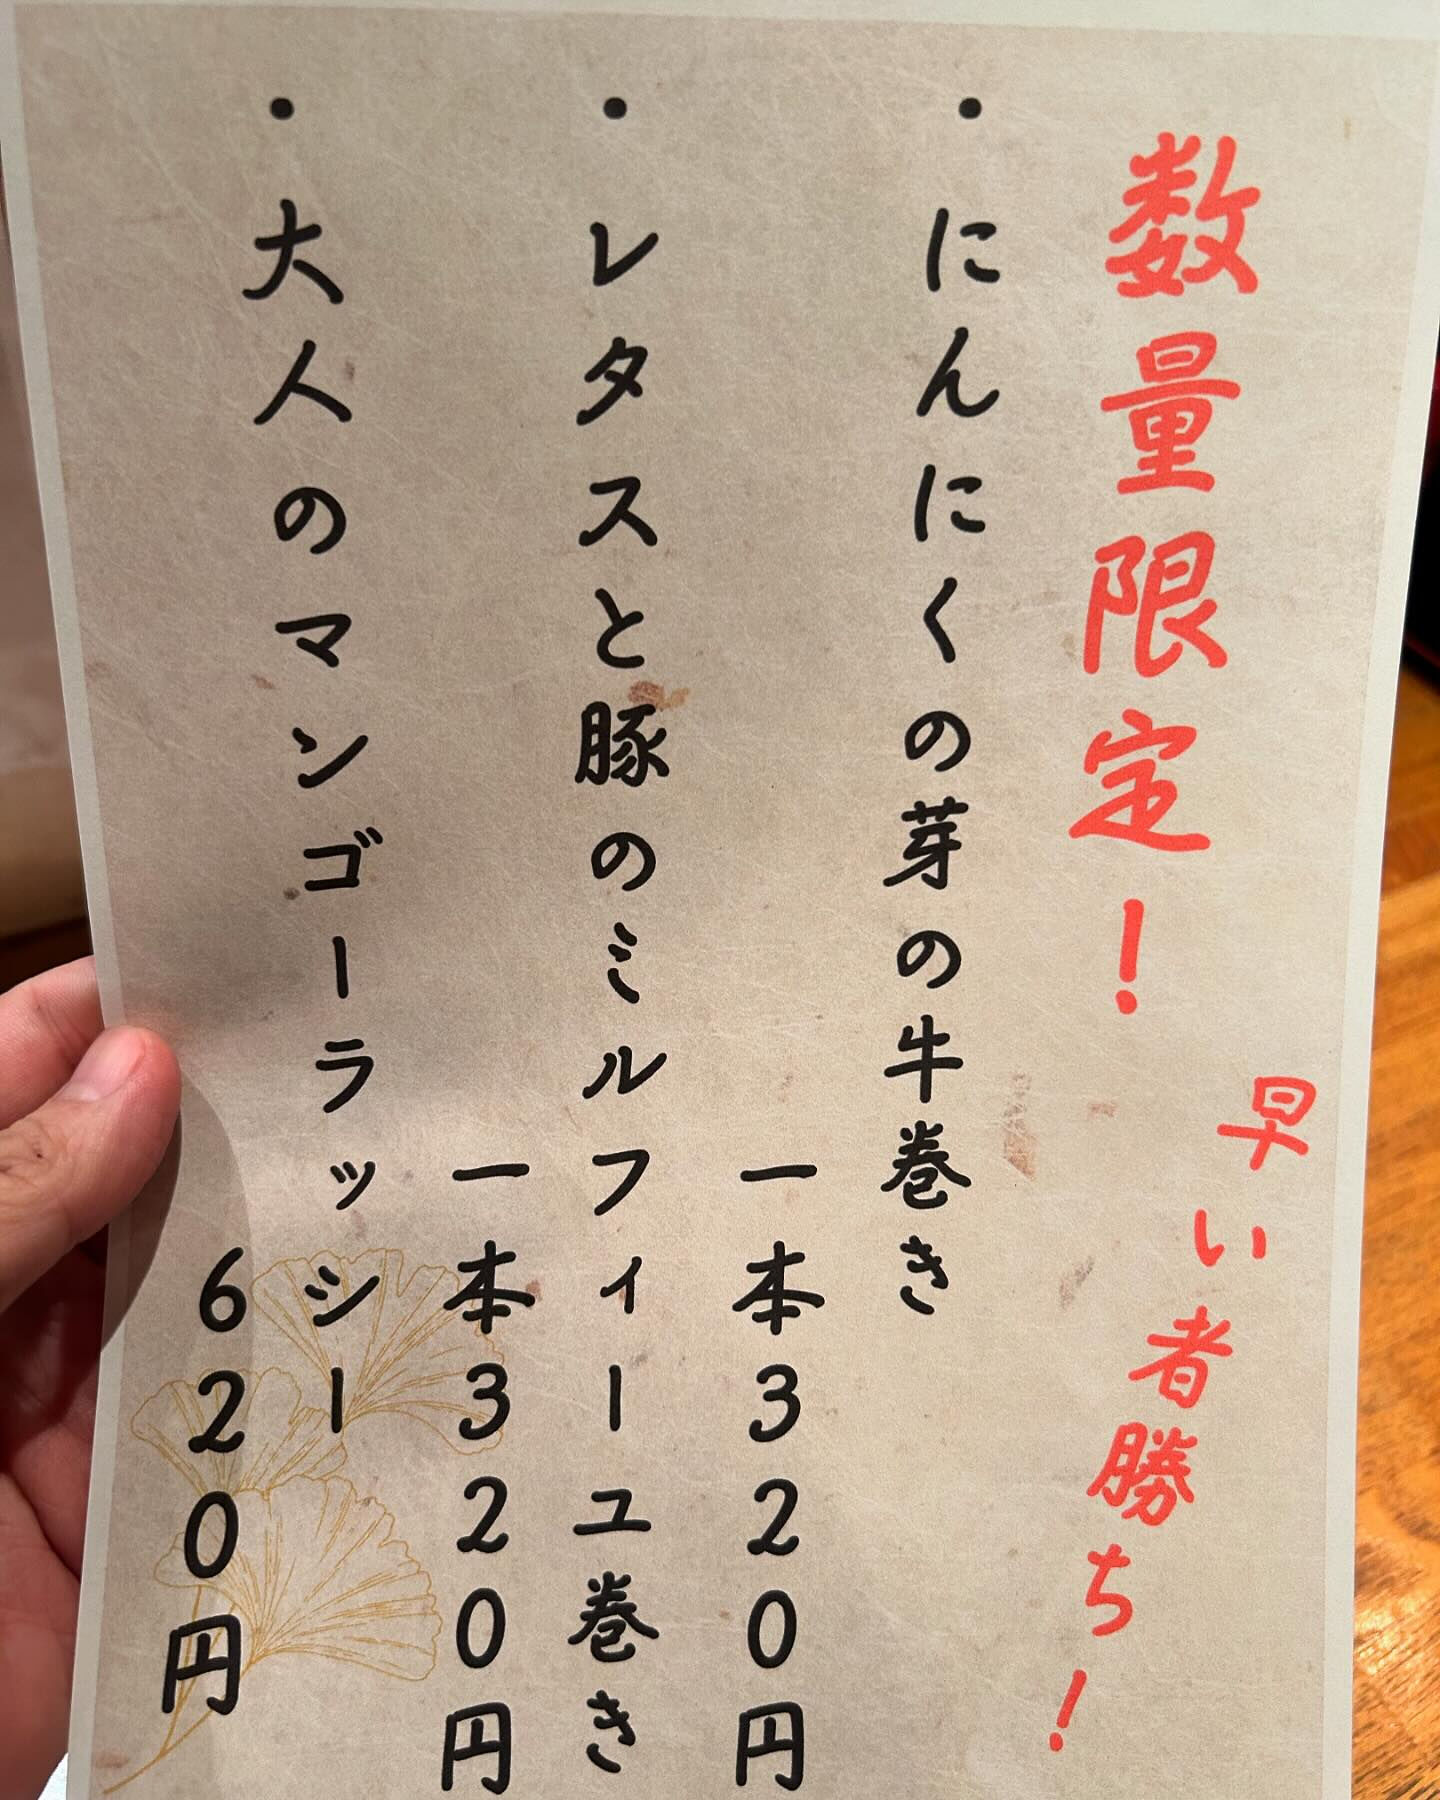 数量限定！
早い者勝ち！
・にんにくの芽の牛巻き
一本320円
・レタスと豚のミルフィーユ巻き
一本320円
・大人のマンゴーラッシー
620円